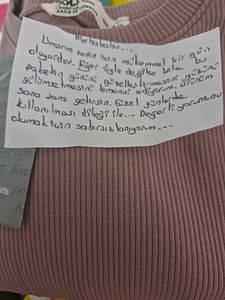 Merhabalar...
Umarım senin için mükemmel bir gün
oluyordur. Eğer öyle değilse bile bu
paketin gününü güzelleştirmesini yüzünü
gülümsetmesini temenni ediyorum. Ürünüm
sana şans getirsin. Güzel günlerde
kullanılması dileği ile... Değerli yorumunu
okumak için sabırsızlanıyorum...